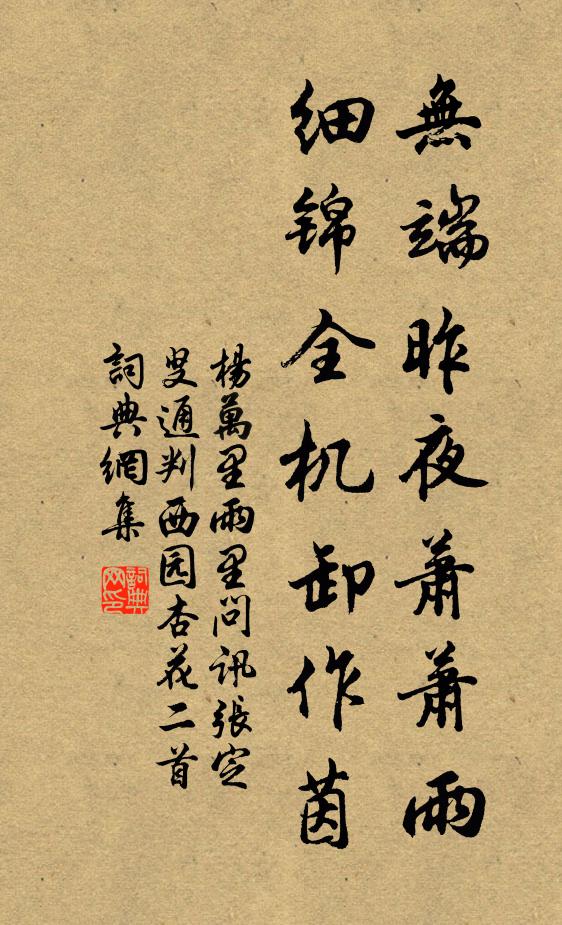 無端昨夜蕭蕭雨
细锦全机卸作茵
楊萬里雨里问訊張定
叟通判西园杏花二首
詞典網集
詞典
网印